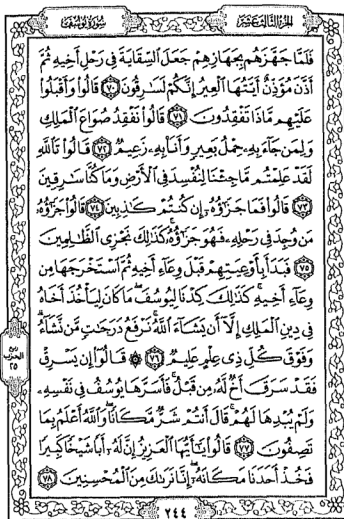 الجزء الثالث عشر
سورة يوسف
فَلَمَّا جَهَّزَهُم بِجَهَازِهِمْ جَعَلَ السِّقَايَةَ فِي رَحْلِ أَخِيهِ ثُمَّ
أَذَّنَ مُؤَذِّنٌ أَيَّتُهَا الْعِيرُ إِنَّكُمْ لَسَارِقُونَ ٧٠ قَالُوا وَأَقْبَلُوا
عَلَيْهِم مَّاذَا تَفْقِدُونَ ٧١ قَالُوا نَفْقِدُ صُوَاعَ الْمَلِكِ
وَلِمَن جَاءَ بِهِ حِمْلُ بَعِيرٍ وَأَنَا بِهِ زَعِيمٌ ٧٢ قَالُوا تَاللَّهِ
لَقَدْ عَلِمْتُم مَّا جِئْنَا لِنُفْسِدَ فِي الْأَرْضِ وَمَا كُنَّا سَارِقِينَ
٧٣ قَالُوا فَمَا جَزَاؤُهُ إِن كُنتُمْ كَاذِبِينَ ٧٤ قَالُوا جَزَاؤُهُ
مَن وُجِدَ فِي رَحْلِهِ فَهُوَ جَزَاؤُهُ كَذَلِكَ نَجْزِي الظَّالِمِينَ
٧٥ فَبَدَأَ بِأَوْعِيَتِهِمْ قَبْلَ وِعَاءِ أَخِيهِ ثُمَّ اسْتَخْرَجَهَا مِن
وِعَاءِ أَخِيهِ كَذَلِكَ كِدْنَا لِيُوسُفَ مَا كَانَ لِيَأْخُذَ أَخَاهُ
فِي دِينِ الْمَلِكِ إِلَّا أَن يَشَاءَ اللَّهُ نَرْفَعُ دَرَجَاتٍ مَّن نَّشَاءُ
وَفَوْقَ كُلِّ ذِي عِلْمٍ عَلِيمٌ ٧٦ ۞ قَالُوا إِن يَسْرِقْ
فَقَدْ سَرَقَ أَخٌ لَّهُ مِن قَبْلُ فَأَسَرَّهَا يُوسُفُ فِي نَفْسِهِ
وَلَمْ يُبْدِهَا لَهُمْ قَالَ أَنتُمْ شَرٌّ مَّكَانًا وَاللَّهُ أَعْلَمُ بِمَا
تَصِفُونَ ٧٧ قَالُوا يَا أَيُّهَا الْعَزِيزُ إِنَّ لَهُ أَبًا شَيْخًا كَبِيرًا
فَخُذْ أَحَدَنَا مَكَانَهُ إِنَّا نَرَاكَ مِنَ الْمُحْسِنِينَ ٧٨
ربع
الحزب
٢٥
٢٤٤